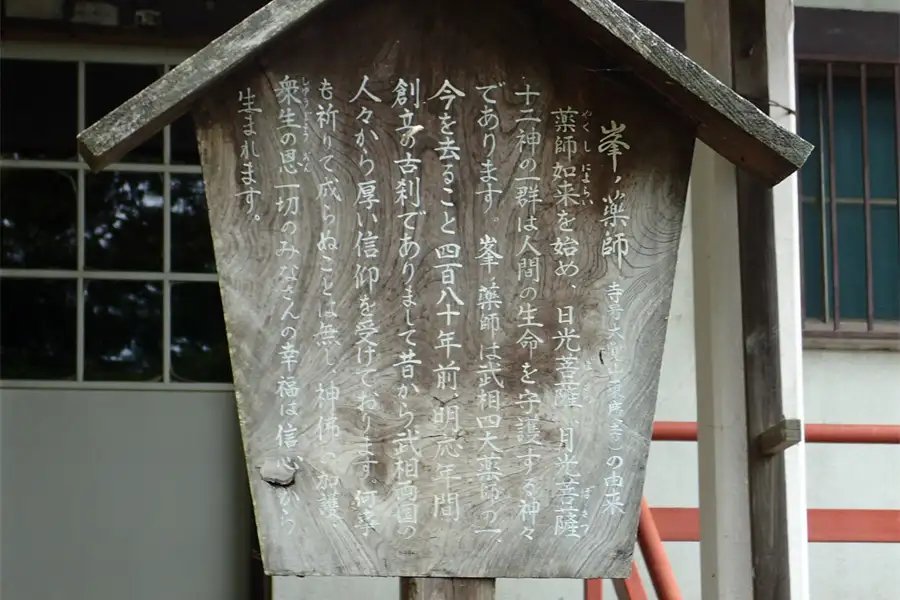 峯ノ薬師 寺号大覚山東慶寺の由来
薬師如来を始め、日光菩薩、月光菩薩
十二神の一群は人間の生命を守護する神々
であります。峯ノ薬師は武相四大薬師の一、
今を去ること四百八十年前、明応年間
創立の古刹でありまして昔から武相両国の
人々から厚い信仰を受けております。何事
も祈りて成らぬことは無し、神佛の加護、
衆生の恩一切のみなさんの幸福は信心から
生まれます。